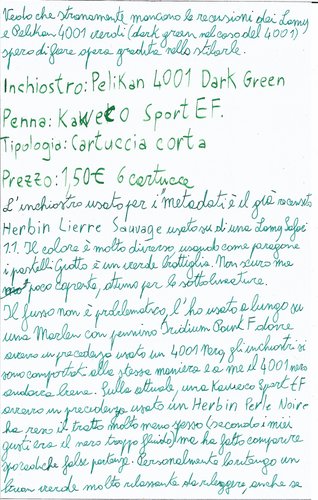 Vedo che stranamente mancano le recensioni dei Lamy
e Pelikan 4001 verdi (dark green nel caso del 4001)
spero di fare opera gradita nello stilarle.
Inchiostro: PeliKan 4001 Dark Green
Penna: KaWeCo Sport EF.
Tipologia: Cartuccia corta
Prezzo: 1,50€ 6 cartucce
L'inchiostro usato per i "metadati" è il già recensito
Herbin Lierre Sauvage usato su di una Lamy Safari
1.1. Il colore è molto diverso, usando come paragone
i pastelli Giotto è un verde bottiglia. Non scuro ma
poco coprente, ottimo per le sottolineature.
Il flusso non è problematico, l'ho usato a lungo su
una Marlen con pennino Iridium Point F dove
avevo in precedenza usato un 4001 Nero, gli inchiostri si
sono comportati alla stessa maniera e a me il 4001 nero
andava bene. Sulla attuale, una Kaweco Sport EF
avevo in precedenza usato un Herbin Perle Noire
ha reso il tratto molto meno spesso (secondo i miei
gusti era il nero troppo fluido) ma ha fatto comparire
sporadiche false partenze. Personalmente lo ritengo un
buon verde molto rilassante da rileggere, anche se